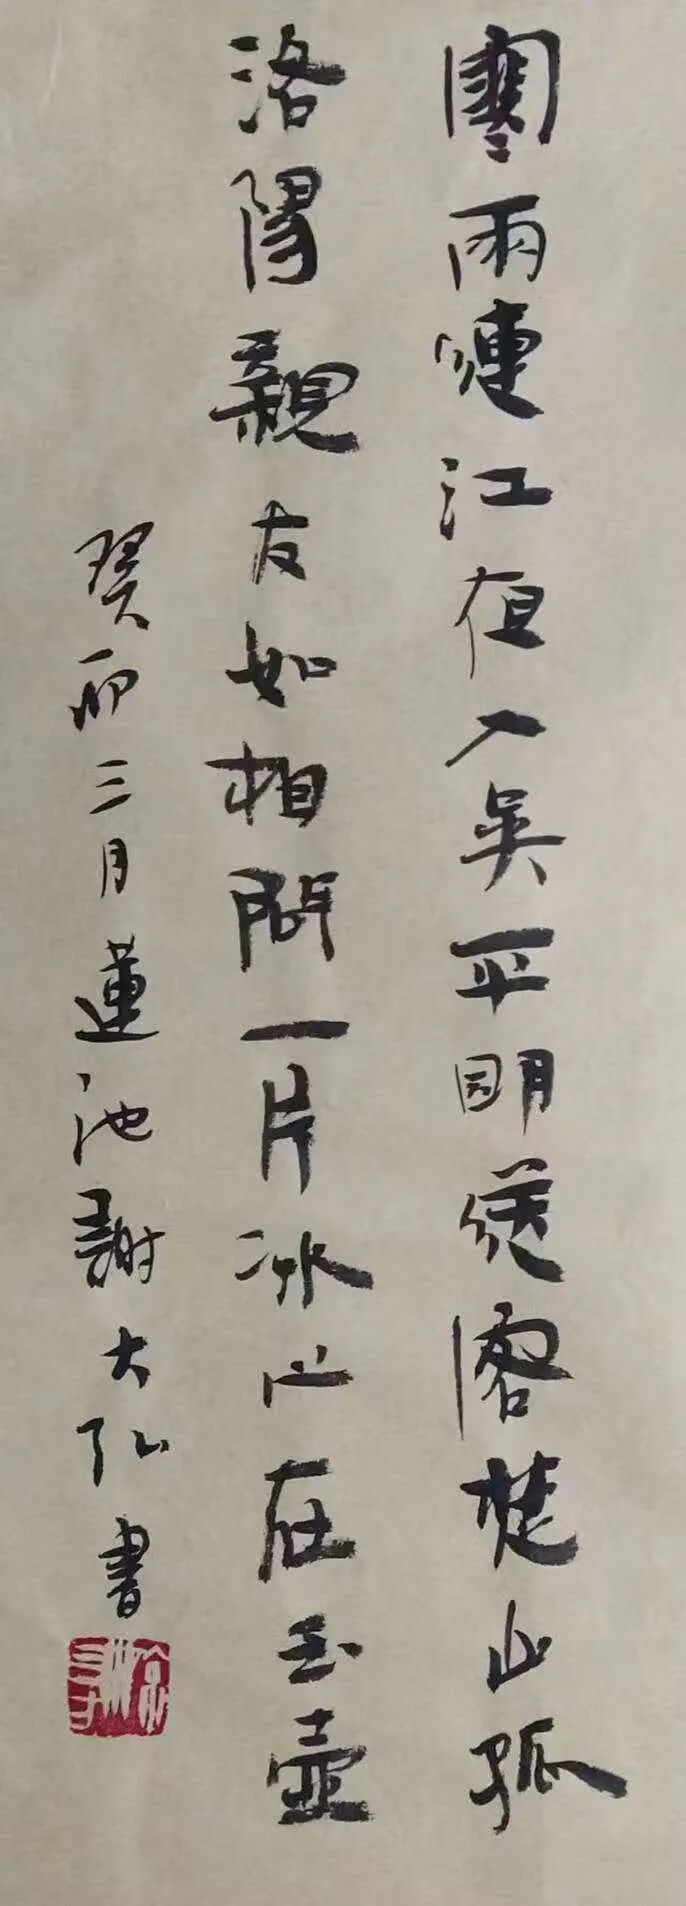 寒雨嗹江夜入吳平明送客楚山孤
洛陽親友如相問一片冰心在玉壺
癸卯三月蓮池謝大弘書